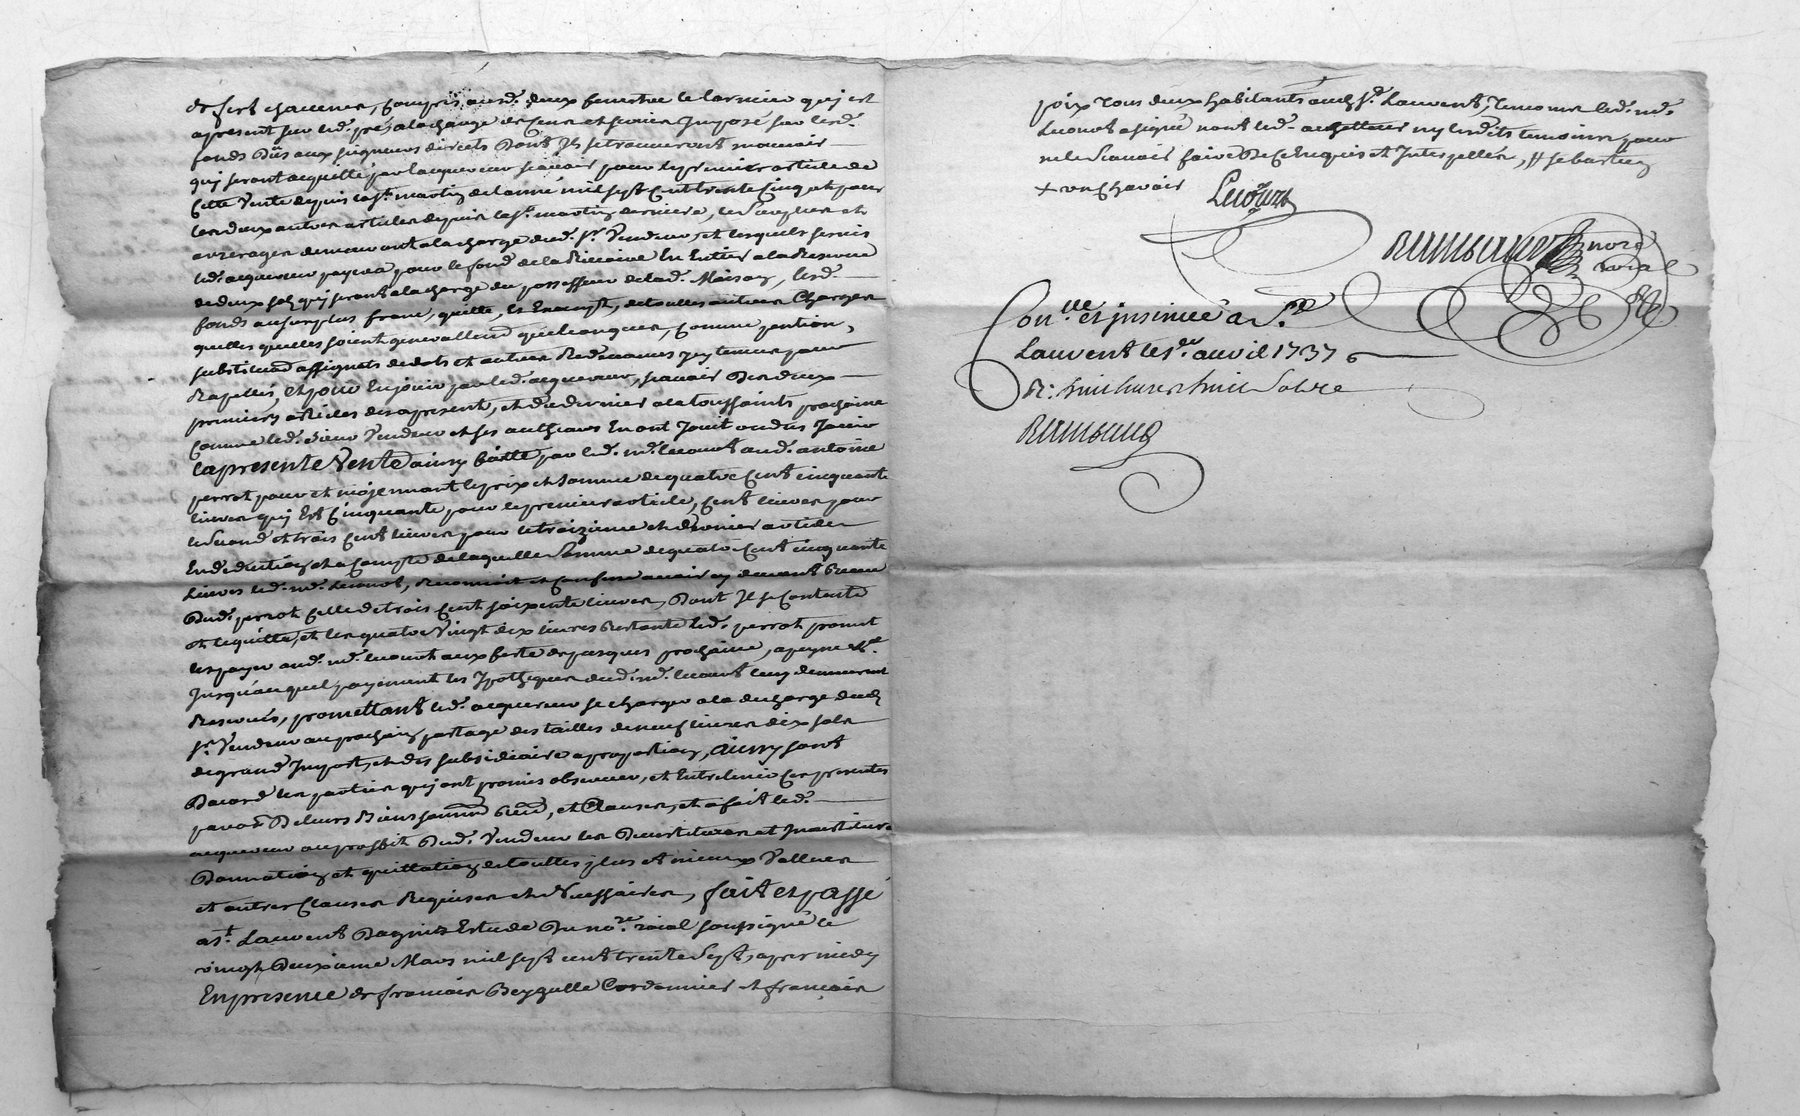 de fert chacunes, compris ausd. deux fenestre le larmier quj est
apresent sur led. prés, a la charge de Cens et servis Imposé sur lesd.
fonds Dûs aux seigneurs directs Dont Ils se trouveront mouvair
quj seront acquitté par lacquereur scavoir pour le premier article de
Cette Vente depuis la st. martin de lanné mil sept Cent trente Cinq et pour
les deux autres articles depuis la st. martin derniere, le surplus et
arrerages demeurant a la charge dud. sr. Vendeur, et lesquels servis
led. acquereur payera pour le fond de la Riviaire En Entier a la Reserve
de deux sols quj seront a la charge du possesseur de lad. Maison, lesd.
fonds au surplus franc, quitte, et Exempt, de touttes autres Charges
quelles quelles soient generallement quelconques, comme pention,
substitud assignats de dots et autres Redevances jcy tenus pour
Rapellés, et pour En jouir par led. acquereur, scavoir Des deux
premiers articles des apresent, et du dernier a la toussaints prochaine
Comme led. sieur Vendeur et ses autheurs En ont Jouit ou dus Jouir
la presente Vente ainsy faitte par led. mr. lecourt aud. antoine
perrot pour et mojennant le prix et somme de quatre Cent cinquante
livres quj Est Cinquante pour le premier article, Cent livres pour
le second et trois Cent livres pour le troizieme et dernier article
En deduction et a Compte de laquelle somme de quatre Cent cinquante
livres led. mr. lecourt, Reconnoit et Confesse avoir
Dud. perrot Celle de trois Cent soixente livres, Dont Il se Contente
et le quitte, et les quatre Vingt dix livres Restante led. perrot promet
les payer aud. mr. lecourt aux feste de pasques prochaine, a peyne &a.
Jusqu'au quel payement les Jpotheques dud. mr. lecourt luy demeurent
Reservés, promettant led. acquereur se charger a la decharge dud.
sr. Vendeur au prochain partage des tailles de neuf livres dix sols
de grand Import, et des subsidiaire a proportion, ainsy sont
Dacord les parties quj ont promis observer, et Entretenir Ces presentes
par obn. De leurs Biens soumon. Ren. et Clauses, et a fait led.
acquereur au proffit Dud. Vendeur les Devestitures et Investiture
Donnation et quittation de touttes plus et mieux Vallues
et autres Clauses Requises et Necessaires, fait et passé
a st. Laurent Dagniz Estude Du nore. roial soussigné le
vingt Deuxieme Mars mil sept cent trente Sept, apres midy
En presence de francois Beyzelle Cordonnier et françois
poix tous deux habitants aud. st. Laurent, temoins led. mr.
Lecourt a signé non led. achetteur ny lesdits temoins pour
ne le Scavoir faire De Ce Enquis et Interpellés, # sebastien
+ un chavoir Lecourt
nore
roial
Conlle et insinué a St.
Laurent le 1er. avril 1737
R. huit livres huit Sols